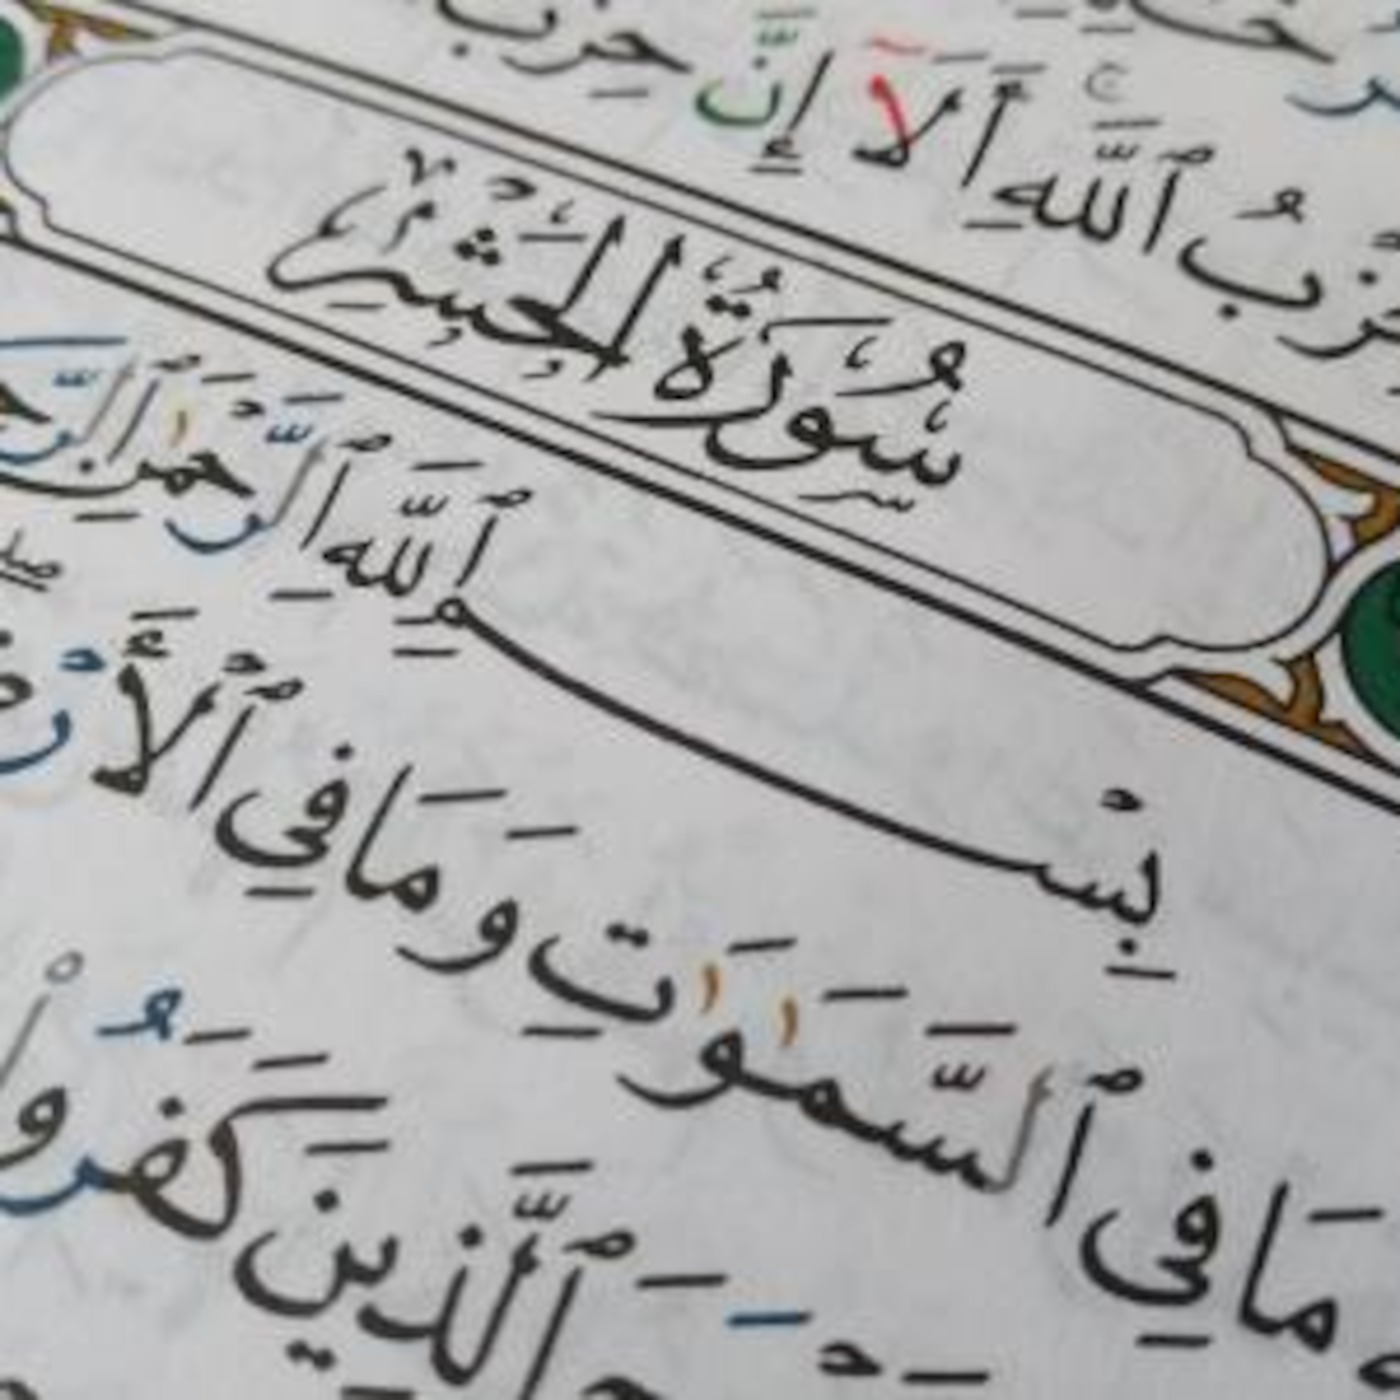 حِزْبُ ٱللَّهِ ۚ أَلَآ إِنَّ حِزْبَ
سُورَةُ الحَشْرِ
بِسْمِ ٱللَّهِ ٱلرَّحْمَٰنِ
مَا فِي ٱلسَّمَٰوَٰتِ وَمَا فِي ٱلْأَرْضِ ۖ
ٱلَّذِينَ كَفَرُوا۟